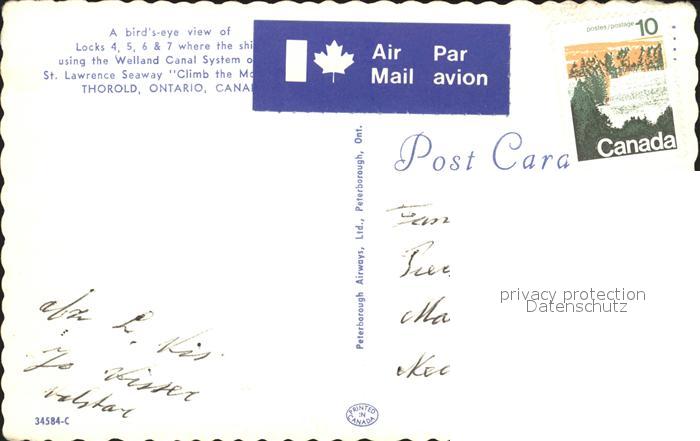 A bird's-eye view of
Locks 4, 5, 6 & 7 where the shi
using the Welland Canal System o
St. Lawrence Seaway "Climb the Mo
THOROLD, ONTARIO, CANA
Air Mail
Par avion
postes/postage 10
Canada
Post Card
Peterborough Airways, Ltd., Peterborough, Ont.
Fam
Ma
privacy protection
Datenschutz
afz
Jo Visser
34584-C
PRINTED IN CANADA